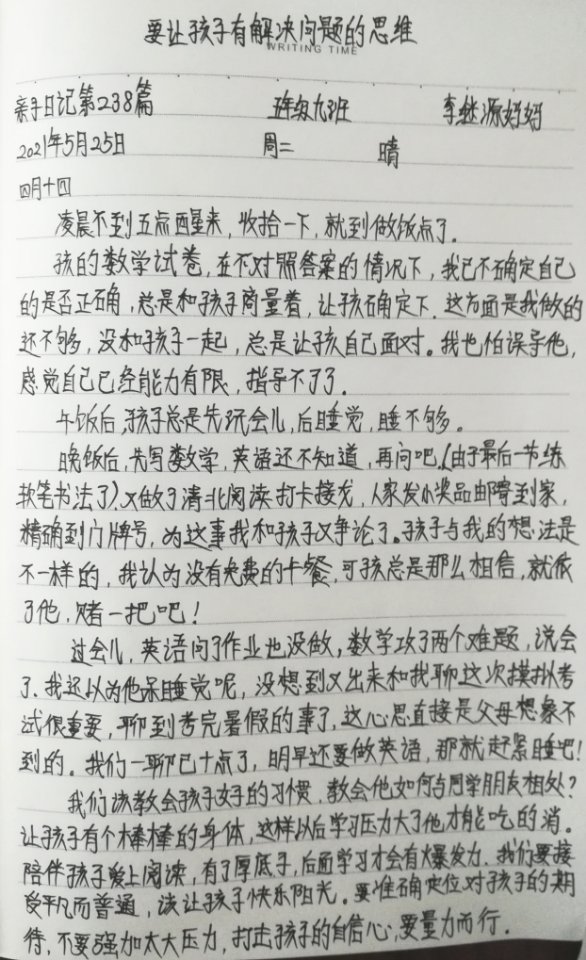 要让孩子有解决问题的思维
WRITING TIME
亲子日记第238篇 班级九班 李继源妈妈
2021年5月25日 周二 晴
四月十四
凌晨不到五点西醒来,收拾一下,就到做饭点了。
孩的数学试卷,在不对照答案的情况下,我已不确定自己
的是否正确,总是和孩子商量着,让孩确定下。这方面是我做的
还不够,没和孩子一起,总是让孩自己面对。我也怕误导他,
感觉自己已经能力有限,指导不了了。
午饭后,孩子总是先玩会儿,后睡觉,睡不够。
晚饭后,先写数学,英语还不知道,再问吧,(由于最后一节练
软笔书法了)又做了清北阅读打卡接龙,人家发小奖品邮寄到家,
精确到门牌号,为这事我和孩子又争论了。孩子与我的想法是
不一样的,我认为没有免费的午餐,可孩总是那么相信,就依
了他,赌一把吧!
过会儿,英语问了作业也没做,数学攻了两个难题,说会
了。我还以为他来睡觉呢,没想到又出来和我聊这次摸拟考
试很重要,聊到考完暑假的事了,这心思直接是父母想象不
到的。我们一聊已十点了,明早还要做英语,那就赶紧睡吧!
我们该教会孩子好的习惯,教会他如何与同学朋友相处?
让孩子有个棒棒的身体,这样以后学习压力大了他才能吃的消。
陪伴孩子爱上阅读,有了厚底子,后面学习才会有爆发力。我们要接
受平凡而普通,该让孩子快乐阳光。要准确定位对孩子的期
待,不要强加太大压力,打击孩子的自信心,要量力而行。